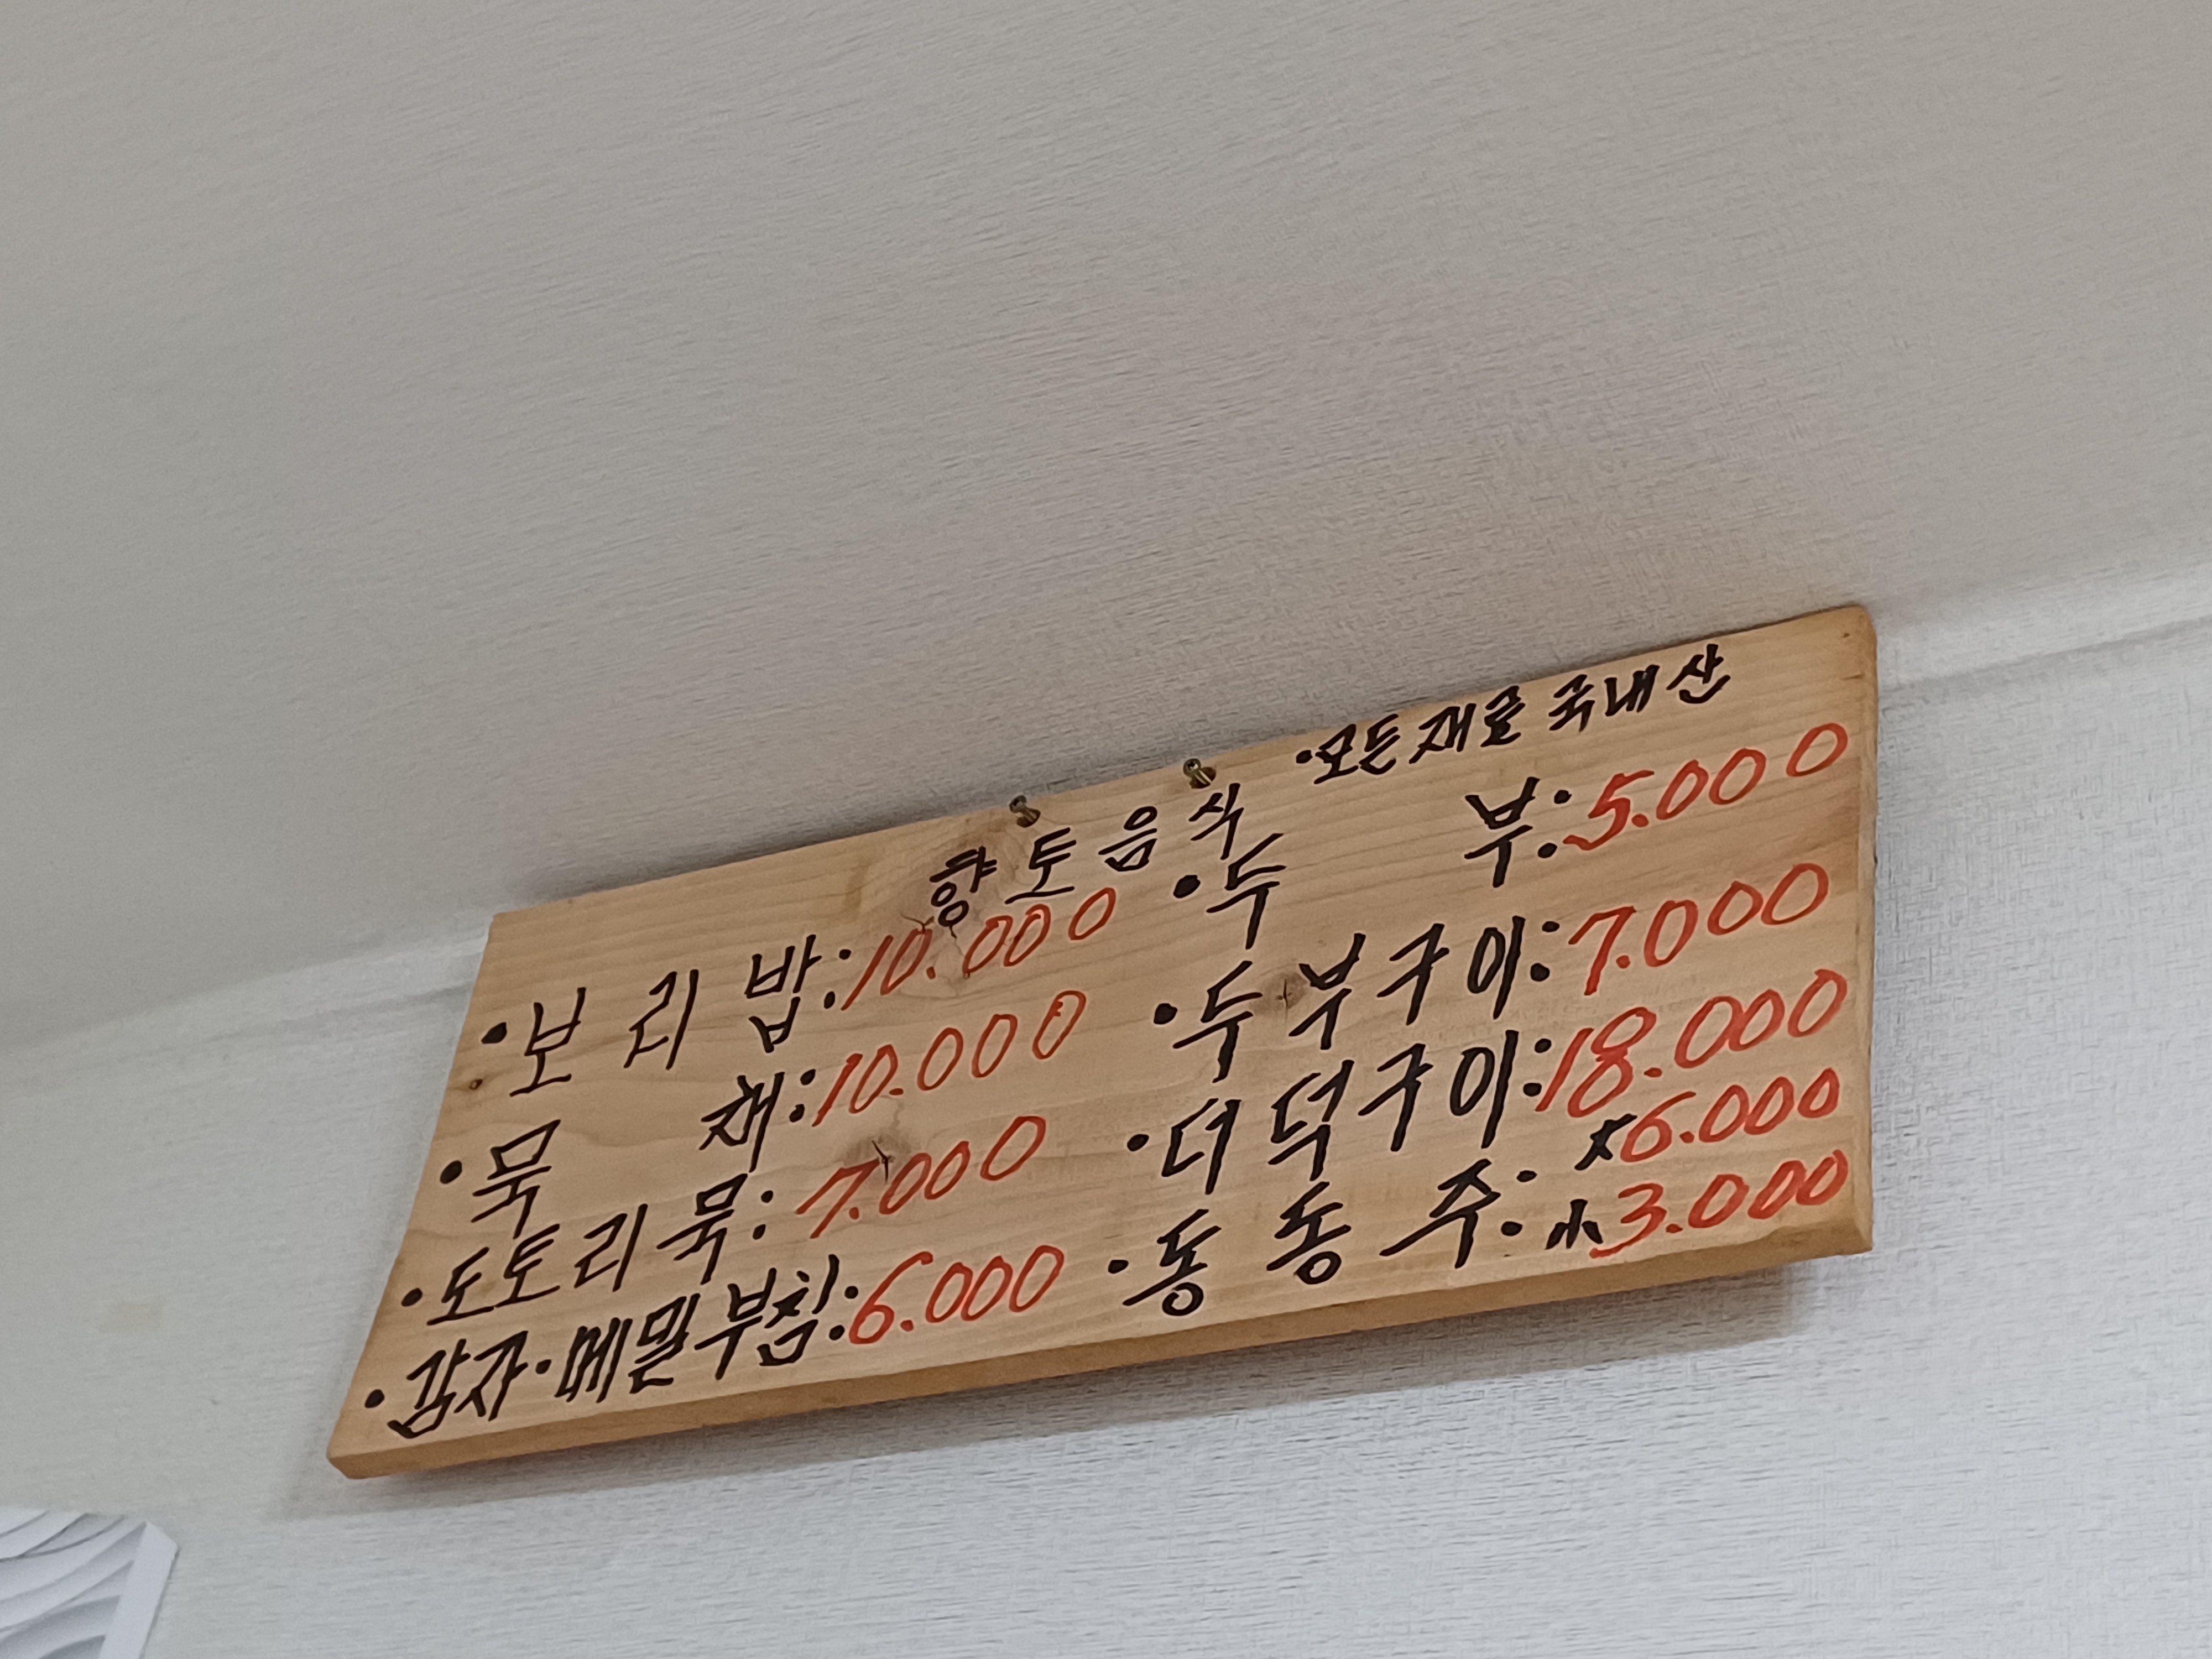 향토음식 ·모든재료 국내산
·보리밥:10.000
·묵 채:10.000
·도토리묵:7.000
·감자·메밀부침:6.000
·두 부:5.000
·두부구이:7.000
·더덕구이:18.000
·동동주: 大6.000
小3.000